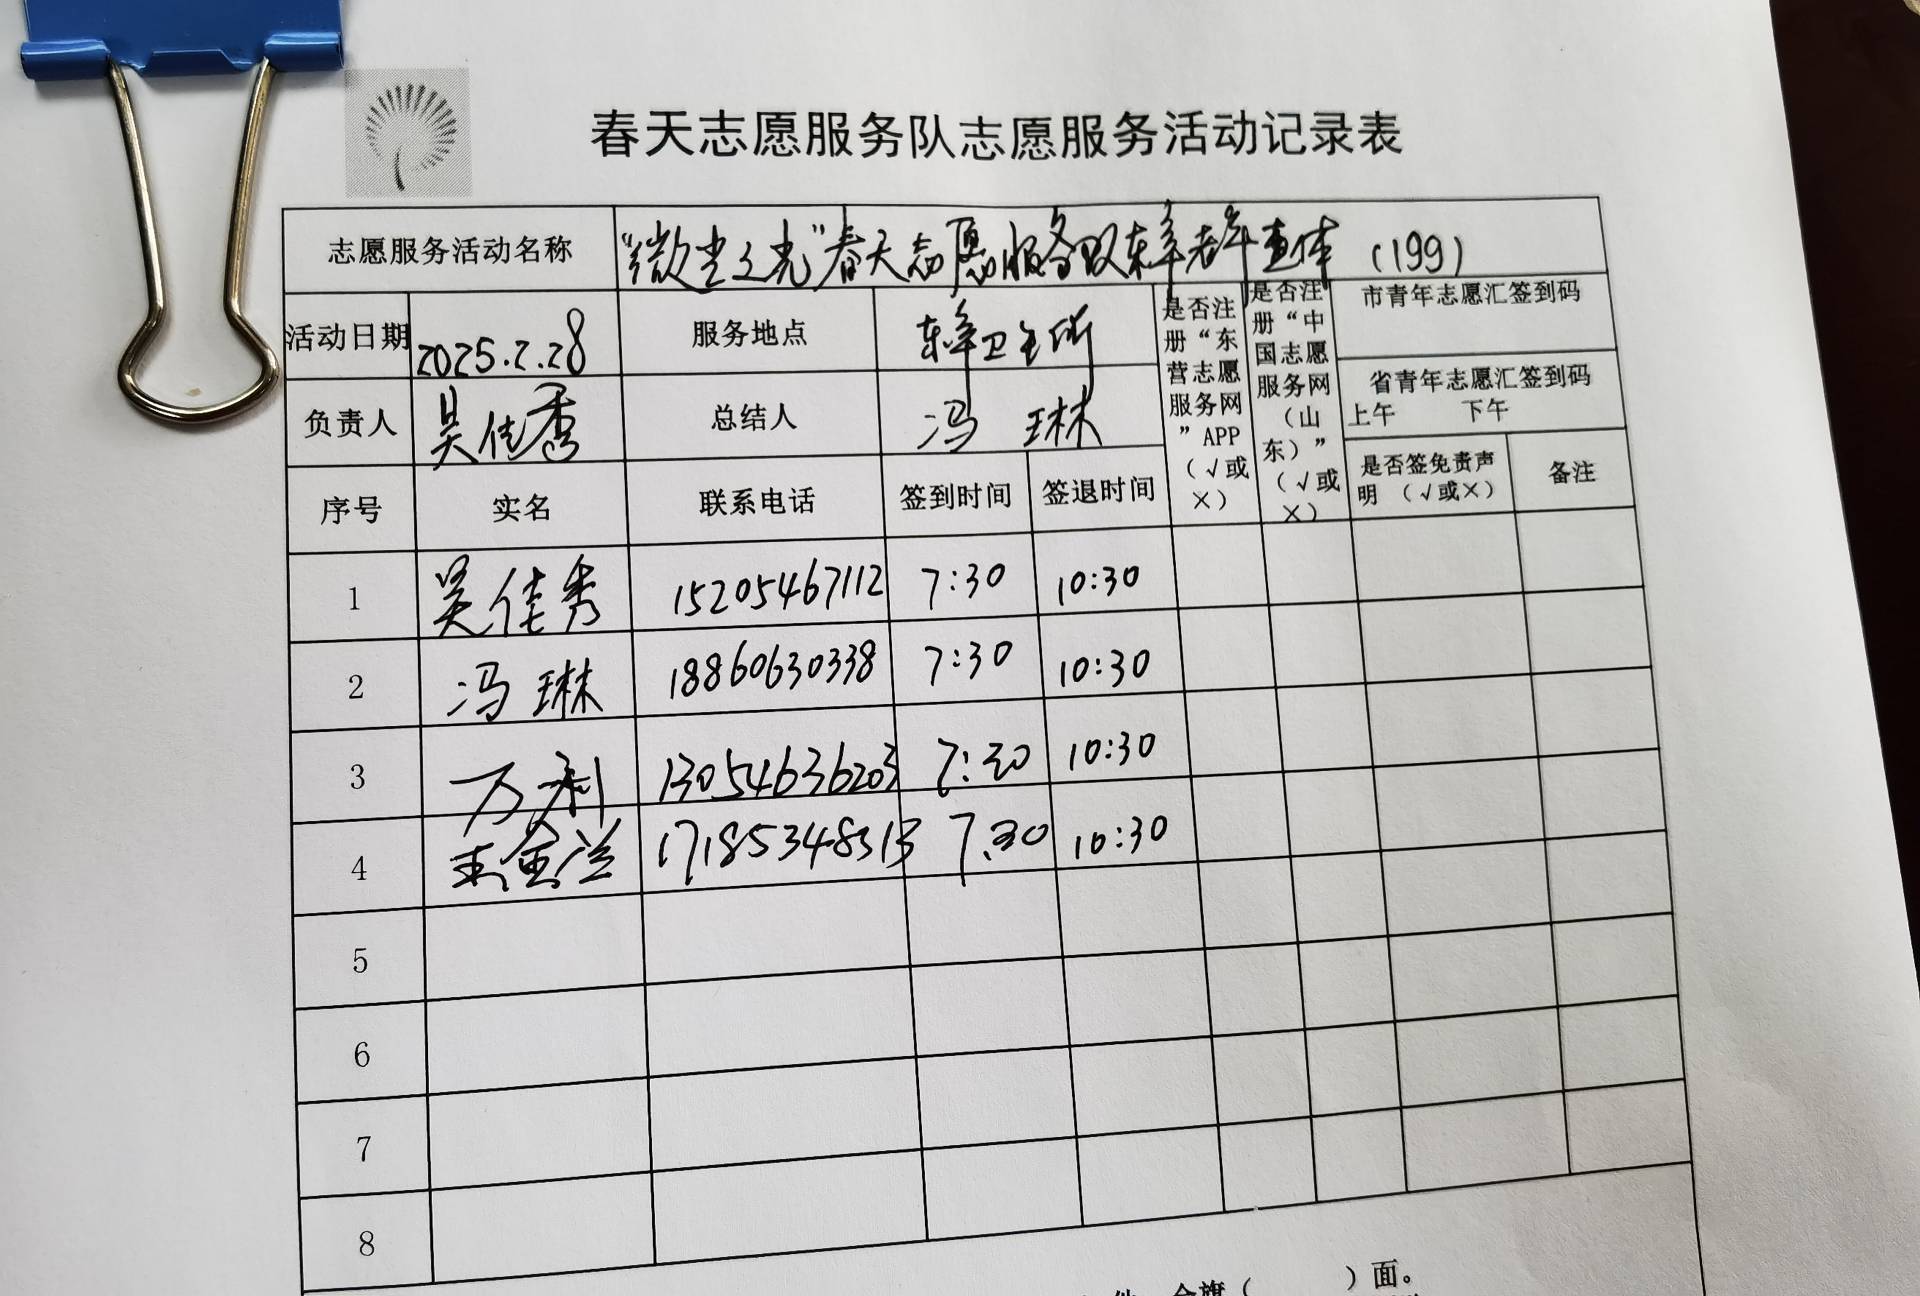 春天志愿服务队志愿服务活动记录表
志愿服务活动名称 “微尘之光”春天志愿服务队东辛老年查体 (199)
活动日期 2025.2.28 服务地点 东辛卫生所 是否注册“东营志愿服务网”APP（√或×） 是否注册“中国志愿服务网（山东）”（√或×） 市青年志愿汇签到码
省青年志愿汇签到码
上午 下午
负责人 吴佳秀 总结人 冯琳
序号 实名 联系电话 签到时间 签退时间 是否签免责声明 （√或×） 备注
1 吴佳秀 15205467112 7:30 10:30
2 冯琳 18860630338 7:30 10:30
3 万利 13054636203 7:30 10:30
4 17185348313 7:30 10:30
5
6
7
8
）面。